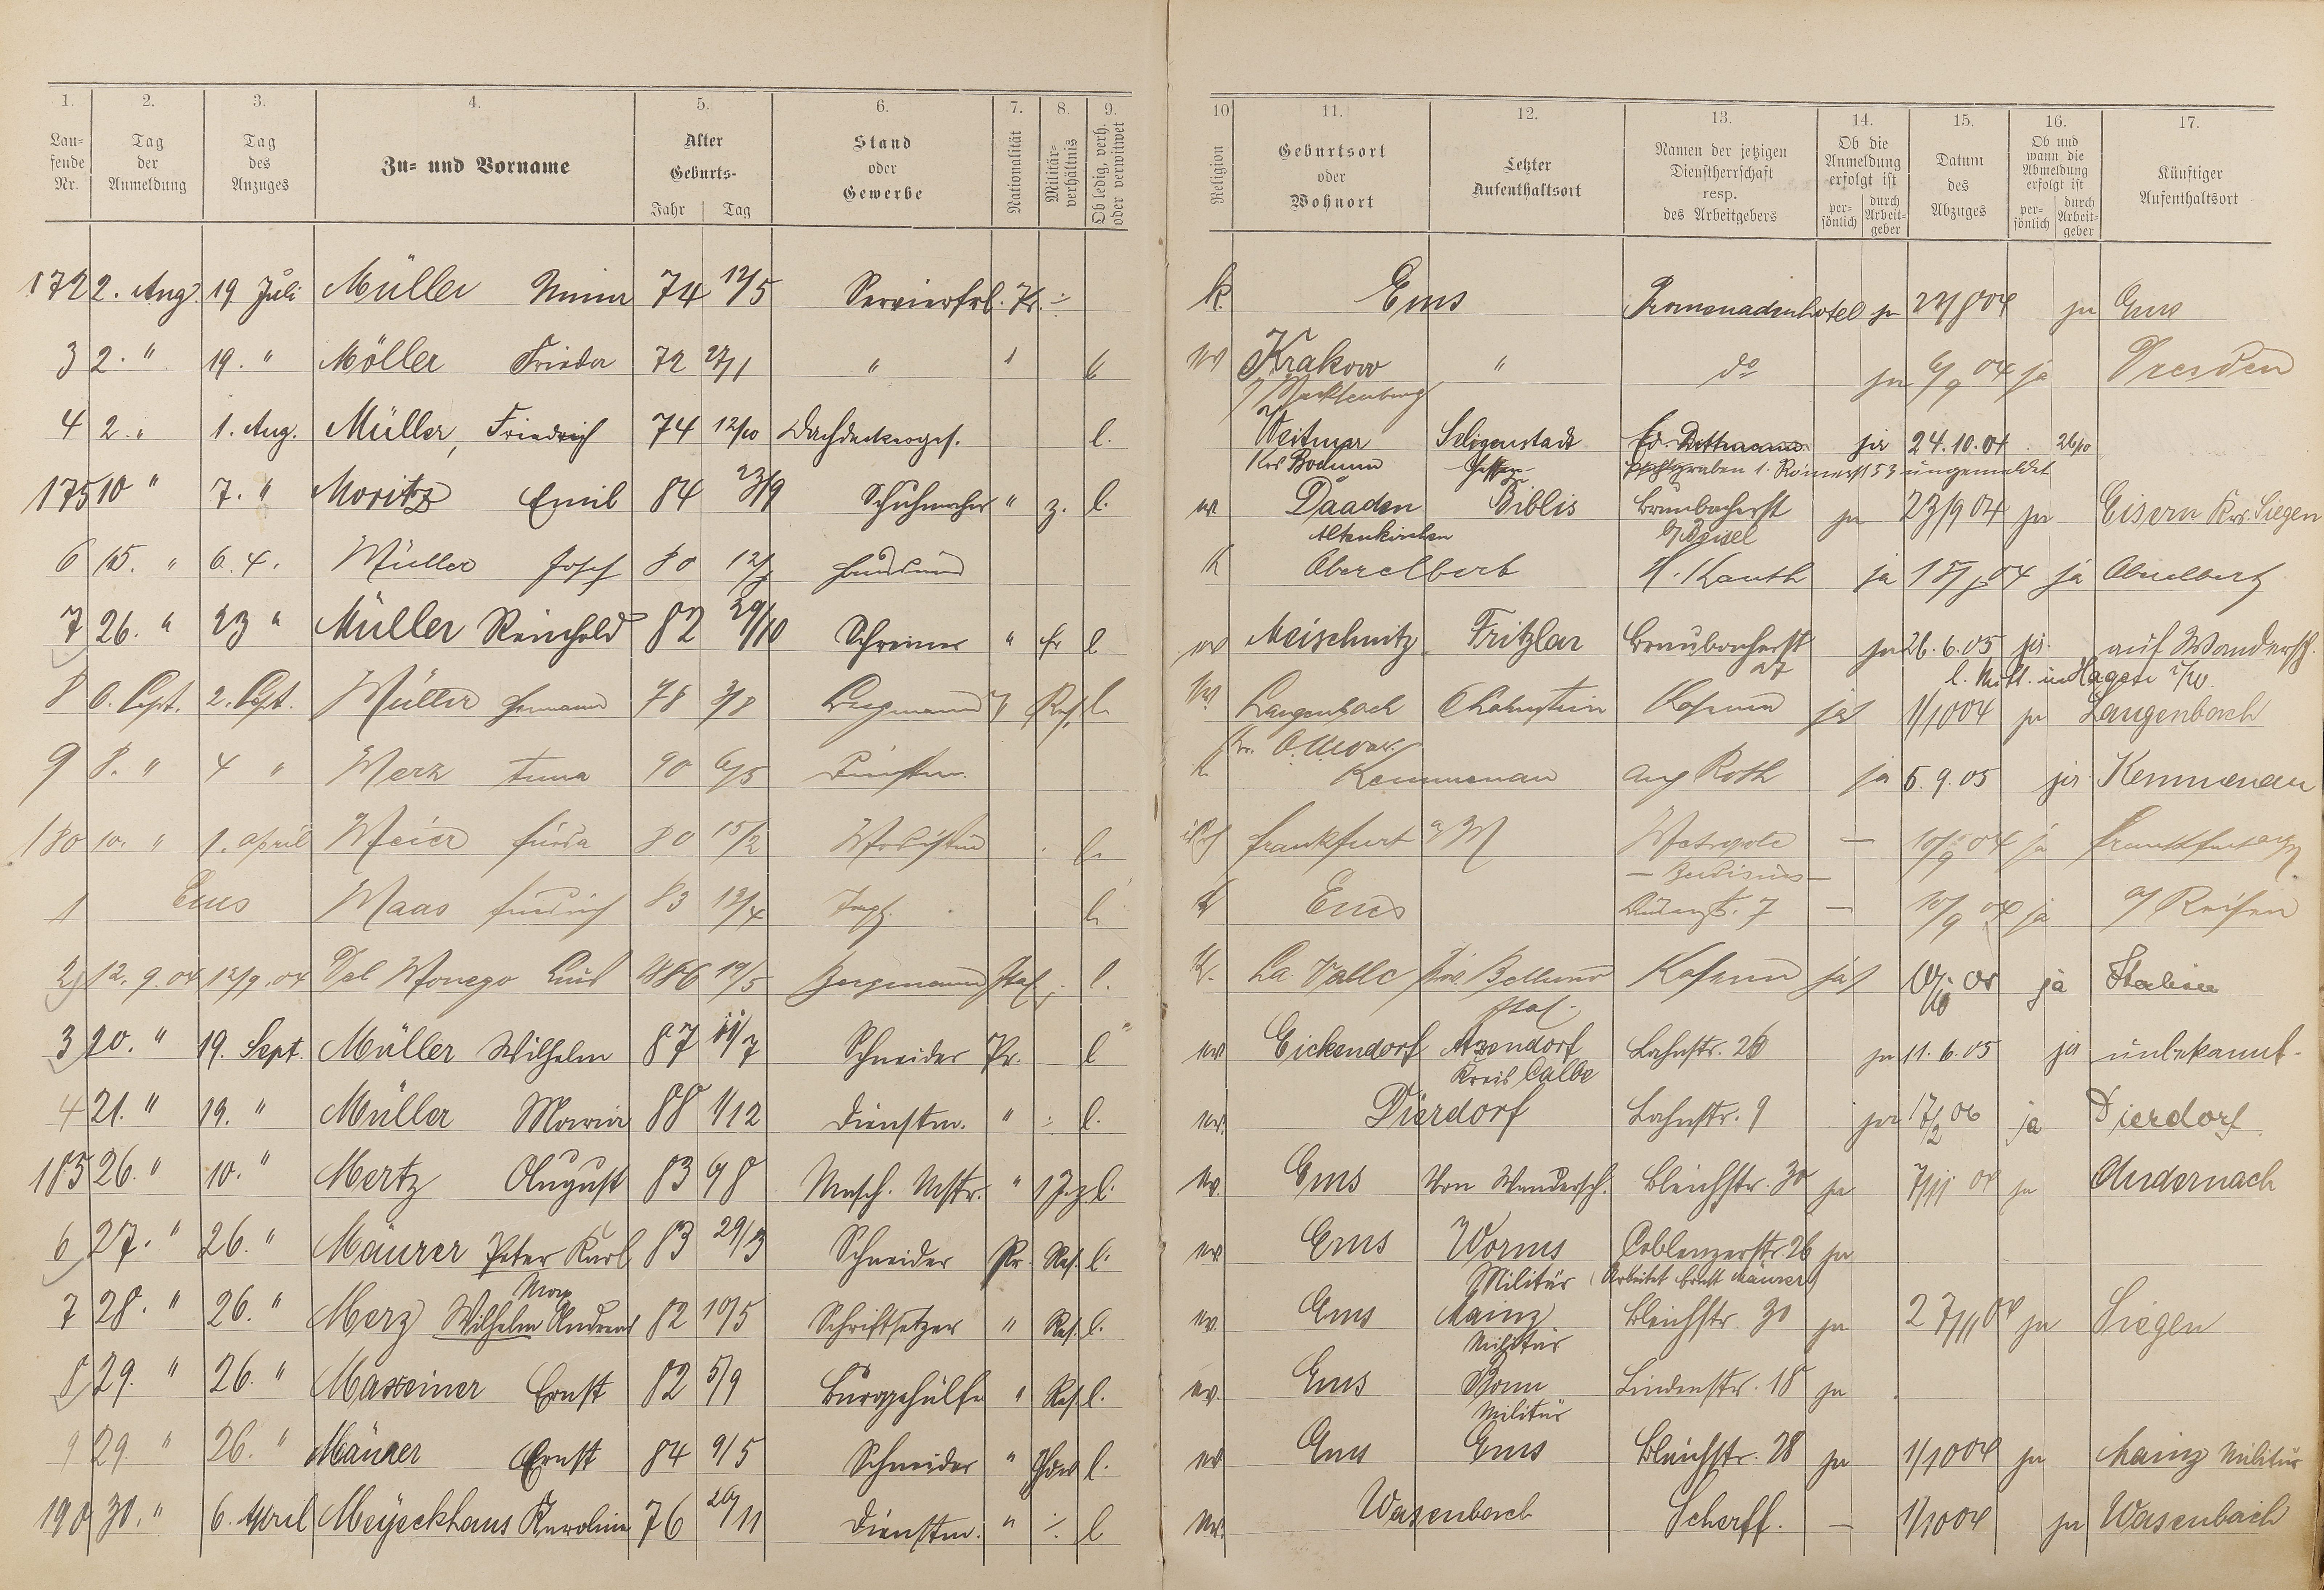 1. 2. 3. 4. 5. 6. 7. 8. 9. 10 11. 12. 13. 14. 15. 16. 17.
Laufende Nr. | Tag der Anmeldung | Tag des Anzuges | Zu- und Vorname | Alter Geburts- Jahr Tag | Stand oder Gewerbe | Nationalität | Militärverhältnis | Ob ledig, verh. oder verwitwet | Religion | Geburtsort oder Wohnort | Letzter Aufenthaltsort | Namen der jetzigen Dienstherrschaft resp. des Arbeitgebers | Ob die Anmeldung erfolgt ist persönlich durch Arbeitgeber | Datum des Abzuges | Ob und wann die Abmeldung erfolgt ist persönlich durch Arbeitgeber | Künftiger Aufenthaltsort
172 2. Aug. 19 Juli Müller 74 12/5 Servierfrl. Pr. ÷ k. Ems Promenadenhotel ja ja Ems
3 2. " 19. " Möller Frieda 72 27/1 " " Krakow " do ja 6/9 04 ja Dresden
i/ Mecklenburg
4 2. " 1. Aug. Müller, Friedrich 74 12/10 Dachdeckerges. l. Weitmar Seligenstadt ja 24.10.04 26/10
Krs Bochum Hessen 1. Römerst 53 umgemeldet
175 10 " 7. " Moritz Emil 84 23/9 Schuhmacher " z. l. ev. Daaden Biblis Braubacherst ja 23/9 04 ja Eisern Krs. Siegen
Altenkirchen
6 15. " 6. 4. Müller Josef 80 K Oberelbert H. Kauth ja 04 ja Oberelbert
7 26. " 23 " Müller Reinhold 82 29/10 Schreiner " l ev Meischnitz Fritzlar Braubacherst ja 26.6.05 ja auf Wandersch.
27 l. Mitt. in Hagen
8 6. Sept. 2. Sept. Müller Hermann 78 3/8 Bergmann Res. l. ev Langenbach ja 1/10 04 ja Langenbach
9 8. " 4 " Merz Anna 90 6/5 Dienstm. k Kemmenau Aug Roth ja 5.9.05 ja Kemmenau
180 10. " 1. April Meier 80 15/2 Modistin l. Frankfurt a/M Metropole — 10/9 04 ja Frankfurt a/M
1 Ems Maas Friedrich 83 19/4 l. Ems 7 — 10/9 04 ja a/ Reisen
2 12. 9. 04 12/9. 04 Del Monego 86 19/5 Bergmann Ital l. K. La Valle Prov. Belluno ja ja Italien
Ital.
3 20. " 19. Sept. Müller Wilhelm 87 11/7 Schneider Pr. l ev Eickendorf Atzendorf Lahnstr. 26 ja 11. 6. 05 ja unbekannt.
Kreis Calbe
4 21. " 19. " Müller Maria 88 1/12 Dienstm. " ÷ l. ev. Dierdorf Lahnstr. 9 ja 17/2 06 ja Dierdorf
185 26. " 10. " Mertz August 83 6/8 Masch. Mstr. " l. ev. Ems Von Wandersch. Bleichstr. 30 ja 7/11 04 ja Andernach
6 27. " 26. " Maurer Peter Karl 83 29/3 Schneider Pr. Res. l. ev. Ems Worms Coblenzerstr. 26 ja
Militär (Arbeitet Ernst Maurer)
7 28. " 26. " Merz Max Wilhelm Andreas 82 10/5 Schriftsetzer " Res. l. ev. Ems Mainz Bleichstr. 30 ja 27/11 04 ja Siegen
Militär
8 29. " 26. " Masseiner Ernst 82 5/9 Bürogehülfe " Res. l. ev. Ems Bonn Lindenstr. 18 ja
Militär
9 29. " 26. " Maurer Ernst 84 9/5 Schneider " l. ev Ems Ems Bleichstr. 28 ja 1/10 04 ja Mainz Militär
190 30. " 6. April Meyeckhaus Karoline 76 20/11 Dienstm. " ÷ l ev. Wasenbach Scherff. — 1/10 04 ja Wasenbach